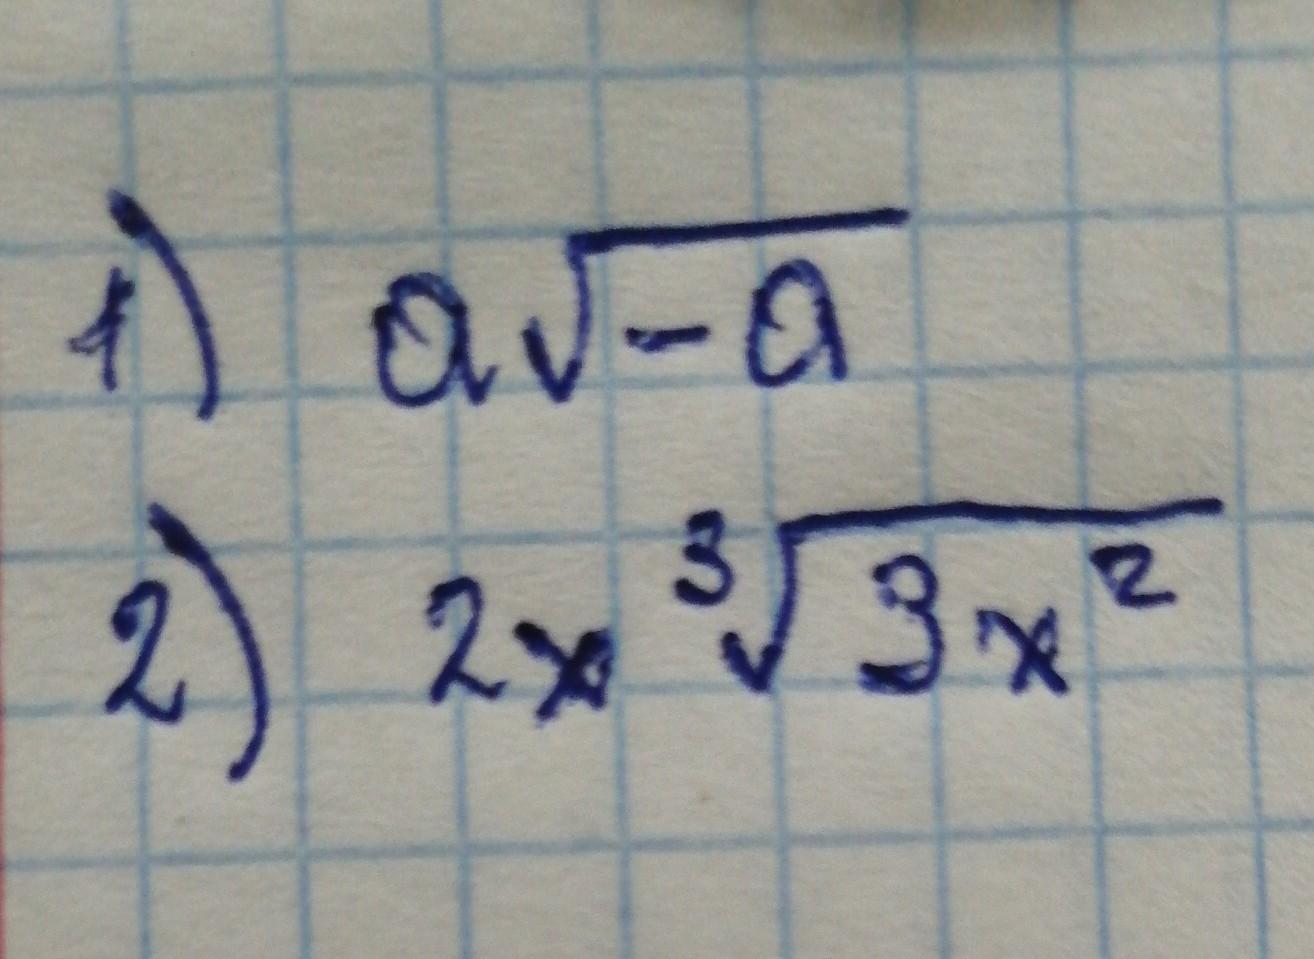 1) a√-a
2) 2x ³√3x²